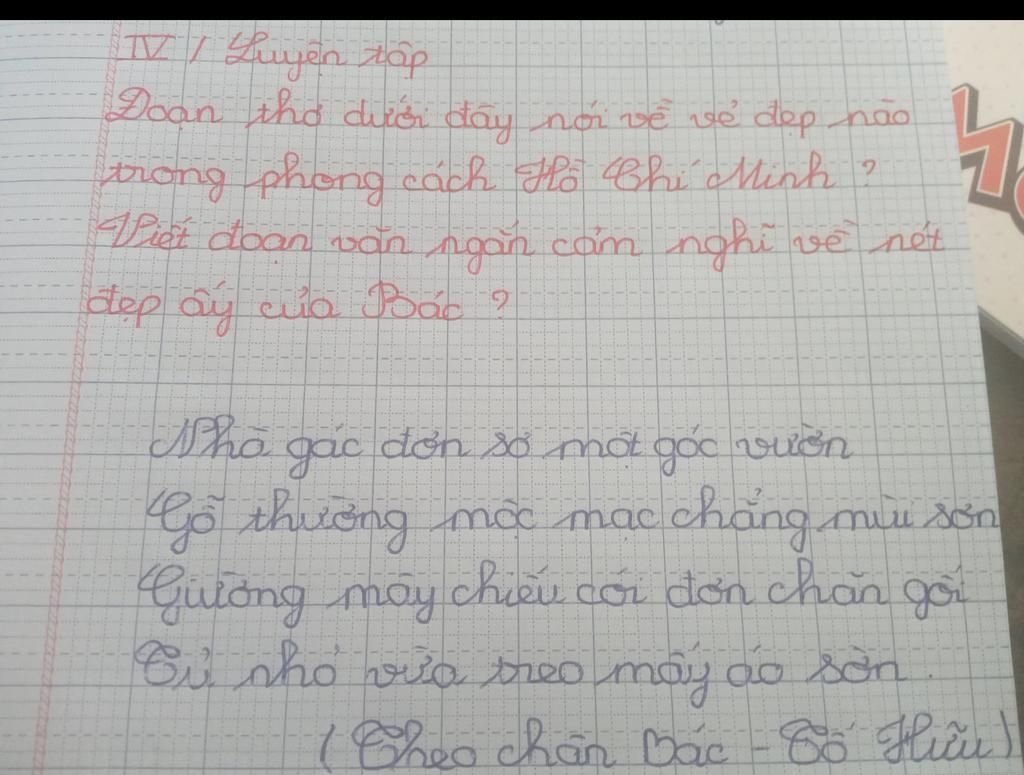 IV / Luyện tập
Đoạn thơ dưới đây nói về vẻ đẹp nào
trong phong cách Hồ Chí Minh ?
Viết đoạn văn ngắn cảm nghĩ về nét
đẹp ấy của Bác ?
Nhà gác đơn sơ một góc vườn
Gỗ thường mộc mạc chẳng mùi sơn
Giường mây chiếu cói đơn chăn gối
Tủ nhỏ vừa treo mấy áo sờn.
( Theo chân Bác - Tố Hữu )